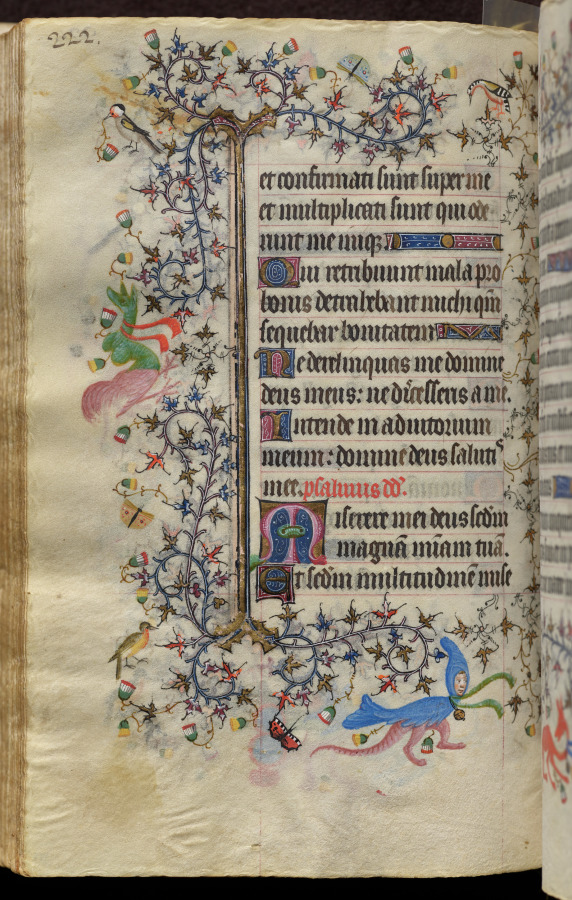 222.
et confirmati sunt super me
et multiplicati sunt qui ode
runt me iniq;
Qui retribuunt mala pro
bonis detrahebant michi qm̄
sequebar bonitatem
Ne derelinquas me domine
deus meus: ne discesseris a me.
Intende in adiutorium
meum: domine deus salutis
mee. psalmus dd̄.
Miserere mei deus scdm̄
magnā mīam tuā.
Et scdm̄ multitudinē mise